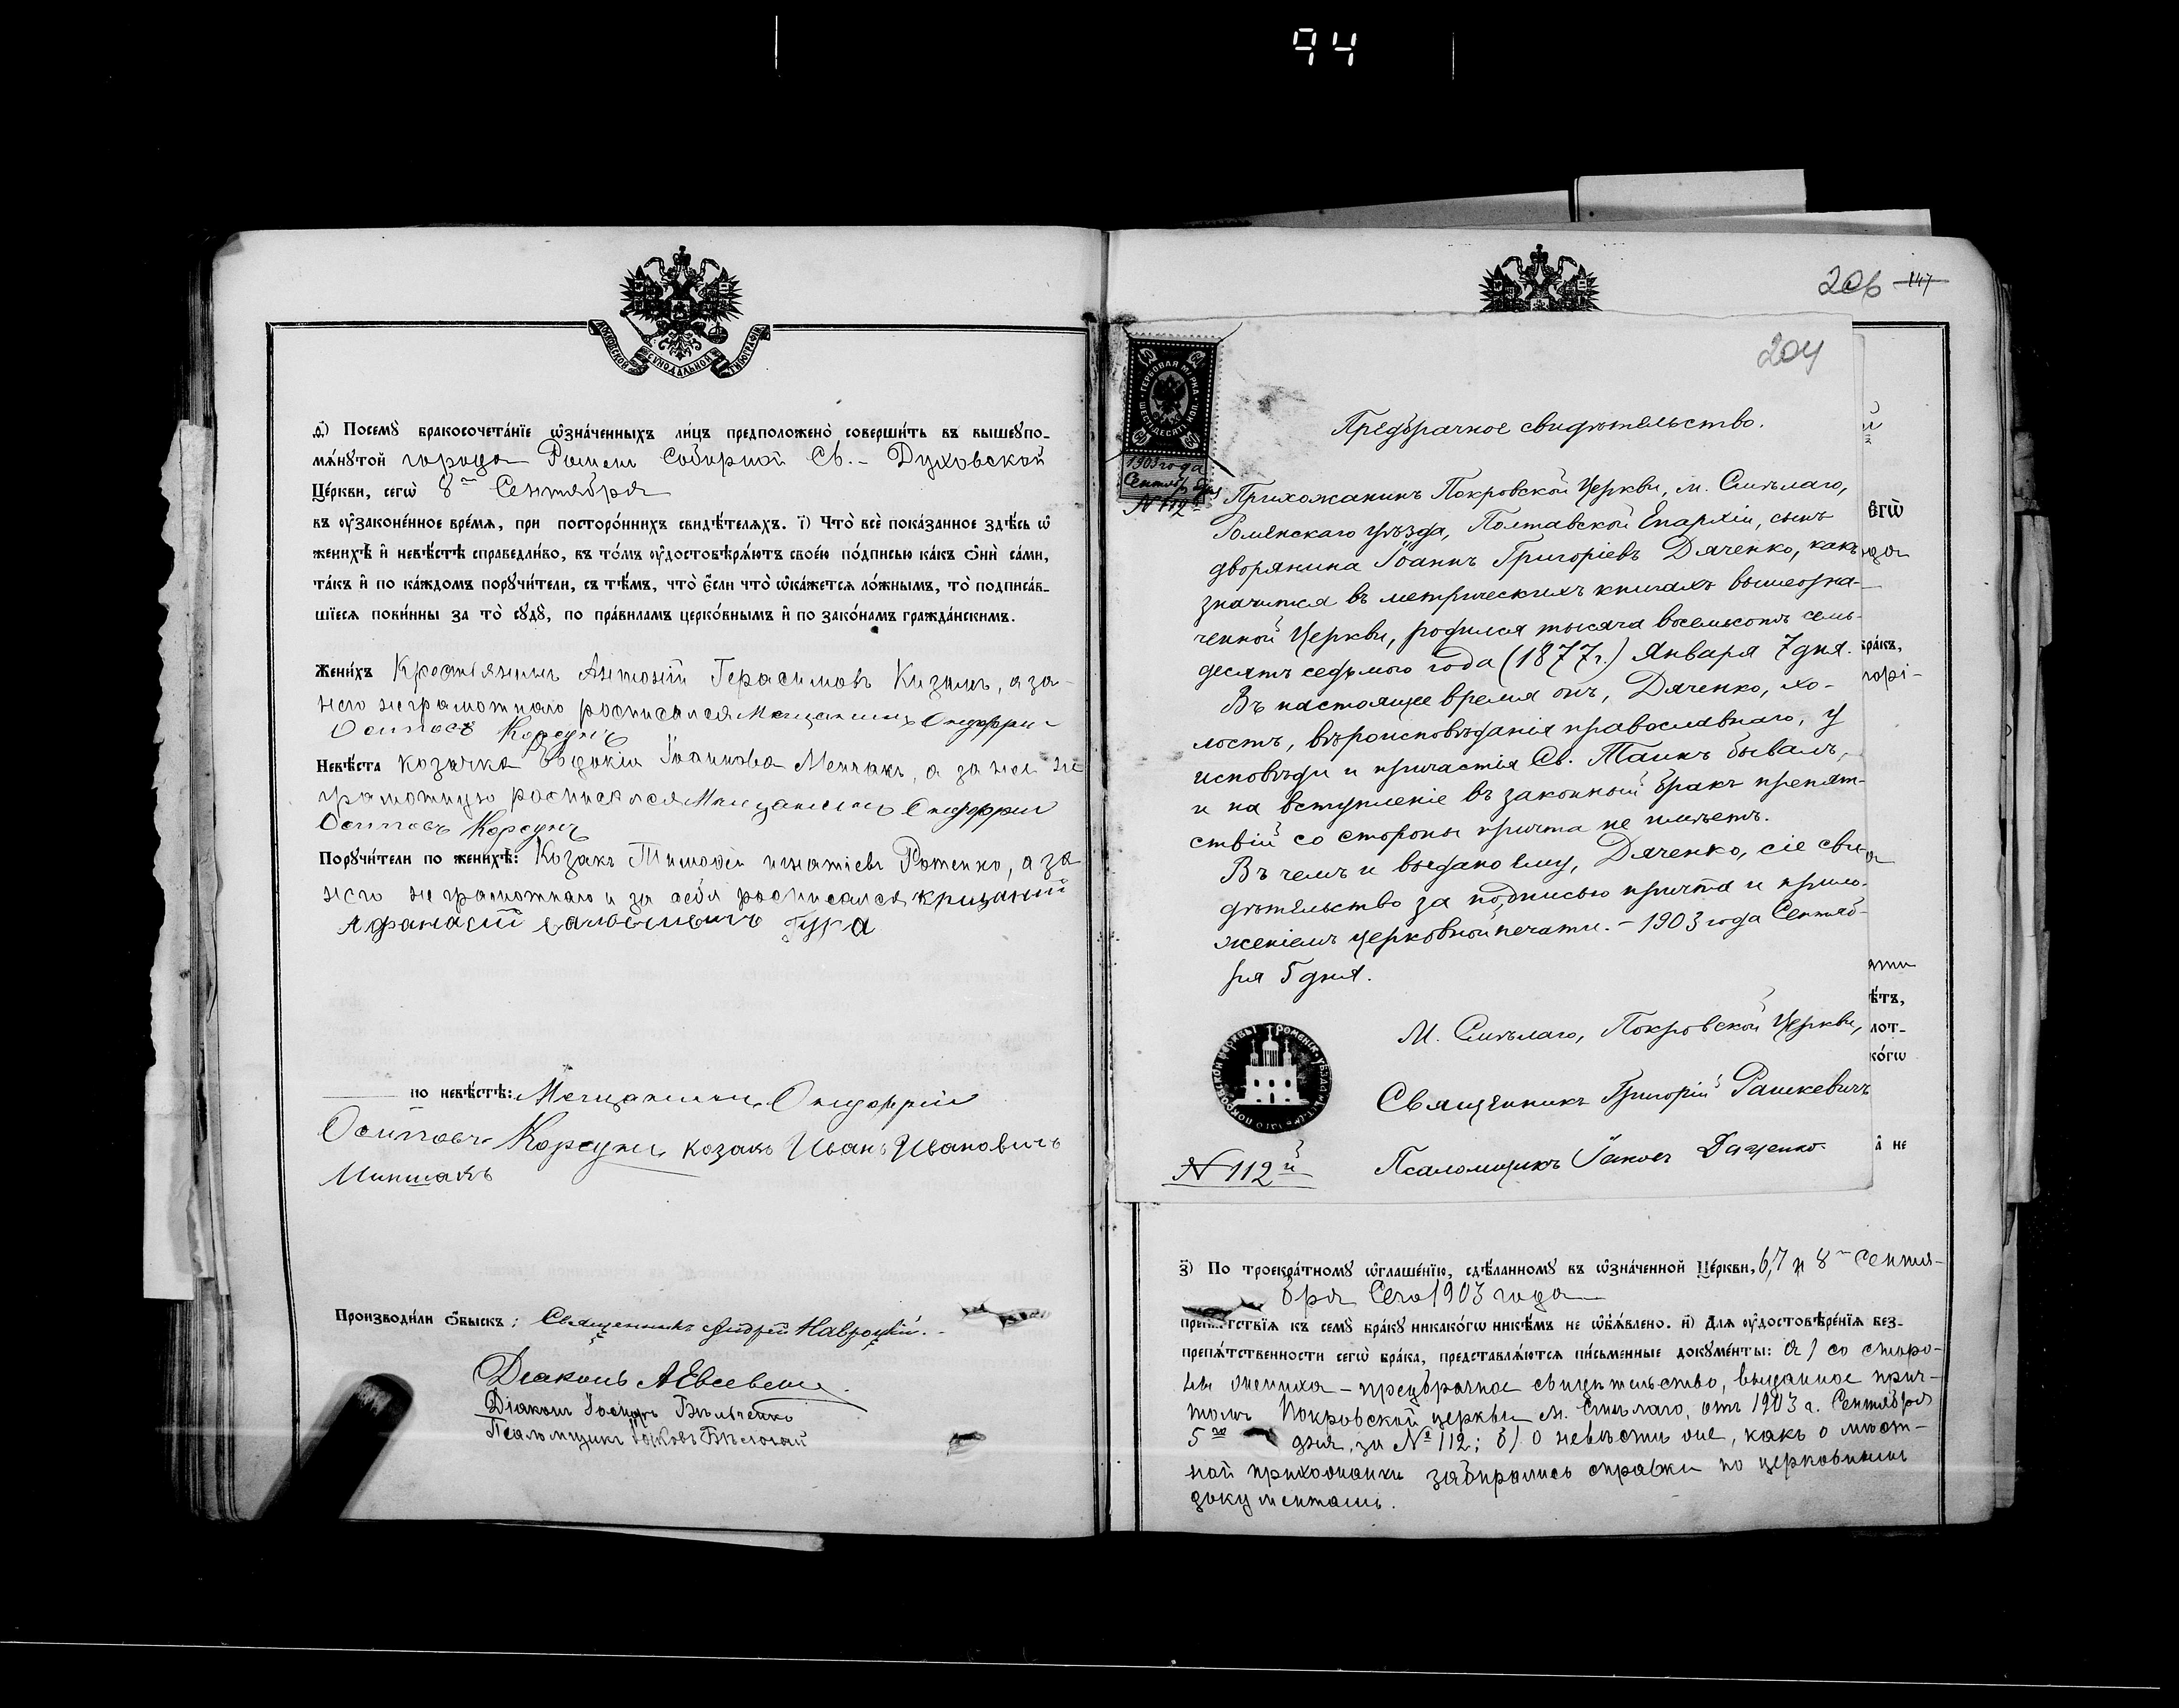 94
МОСКОВСКОЙ СѴНОДАЛЬНОЙ ТИПОГРАФІИ
ѳ҃) Посемꙋ бракосочета́нїе ѡ҆зна́ченныхъ ли́цъ предположено̀ соверши́ть въ вышеꙋпо-
мѧ́нꙋтой города Ромен Соборной Св.- Духовской
Це́ркви, сегѡ̀ 8го Сентября
въ ѹ҆законе́нное вре́мѧ, при посторо́ннихъ свидѣ́телѧхъ. і҃) Что̀ всѐ пока́занное здѣ́сь ѡ҆
женихѣ̀ и҆ невѣ́стѣ справедли́во, въ то́мъ ѹ҆достовѣрѧ́ютъ свое́ю по́дписью ка́къ ѻ҆нѝ са́ми,
та́къ и҆ по ка́ждомъ порꙋчи́тели, съ тѣ́мъ, что̀ є҆́сли что̀ ѡ҆ка́жетсѧ ло́жнымъ, то̀ подписа́в-
шїесѧ пови́нны за то̀ сꙋдꙋ̀, по пра́виламъ церко́внымъ и҆ по зако́намъ гражда́нскимъ.
Жени́хъ Крестьянинъ Антоній Герасимовъ Кизимъ, а за
него неграмотнаго росписался Мещанинъ Онуфрій
Осиповъ Корсунъ
Невѣ́ста козачка Евдокія Іоаннова Меншакъ, а за нея не
грамотную росписался Мещанинъ Онуфрій
Осиповъ Корсунъ
Порꙋчи́тели по женихѣ̀: Козакъ Тимоѳей Игнатіевъ Ротенко, а за
него не грамотнаго и за себя росписался
Афанасій Савельевичъ Гура
по невѣ́стѣ: Мещанинъ Онуфрій
Осиповъ Корсунъ козакъ Иванъ Ивановичъ
Миншакъ
Производи́ли ѻ҆́быскъ: Священникъ Андрей Навроцкій.
Діаконъ А Евсевскій
Діаконъ Іосифъ Бѣльченко
Псаломщикъ Іаковъ Бѣлоконь
206 147
204
ГЕРБОВАЯ МАРКА ШЕСТЬДЕСЯТЪ КОП.
60
1903 года
Сентяб. 5 дня
№ 112й
Предбрачное свидѣтельство.
Прихожанинъ Покровской Церкви, м. Смѣлаго,
Роменскаго уѣзда, Полтавской Епархіи, сынъ
дворянина Іоаннъ Григоріевъ Дяченко, какъ
значится въ метрическихъ книгахъ вышеозна-
ченной Церкви, родился тысяча восемьсотъ семь-
десятъ седьмого года (1877г.) Января 7 дня.
Въ настоящее время онъ, Дяченко, хо-
лостъ, вѣроисповѣданія православнаго, у
исповѣди и причастія Св. Таинъ бывалъ,
и на вступленіе въ законный бракъ препят-
ствій со стороны причта не имѣетъ.
Въ чемъ и выдано ему, Дяченко, сіе сви-
дѣтельство за подписью причта и прило-
женіемъ церковной печати. - 1903 года Сентяб-
ря 5 дня.
М. Смѣлаго, Покровской Церкви,
Священникъ Григорій Рашкевичъ
№ 112й
Псаломщикъ Іаковъ Дяченко
з҃) По троекра́тномꙋ ѡ҆глаше́нїю, сдѣ́ланномꙋ въ ѡ҆зна́ченной Це́ркви, 6,7 и 8го Сентя-
бря сего 1903 года
препѧ́тствїѧ къ семꙋ̀ бра́кꙋ никако́гѡ никѣ́мъ не ѡ҆б̾ѧ́влено. и҃) Длѧ ѹ҆достовѣре́нїѧ без-
препѧ́тственности сегѡ̀ бра́ка, представлѧ́ютсѧ пи́сьменные докꙋме́нты: а) со сторо-
ны жениха - предбрачное свидѣтельство, выданное прич-
томъ Покровской церкви м. Смѣлаго, отъ 1903 г. Сентября
5го дня, за № 112; б) о невѣстѣ же, какъ о мѣст-
ной прихожанки забирались справки по церковнымъ
документамъ.